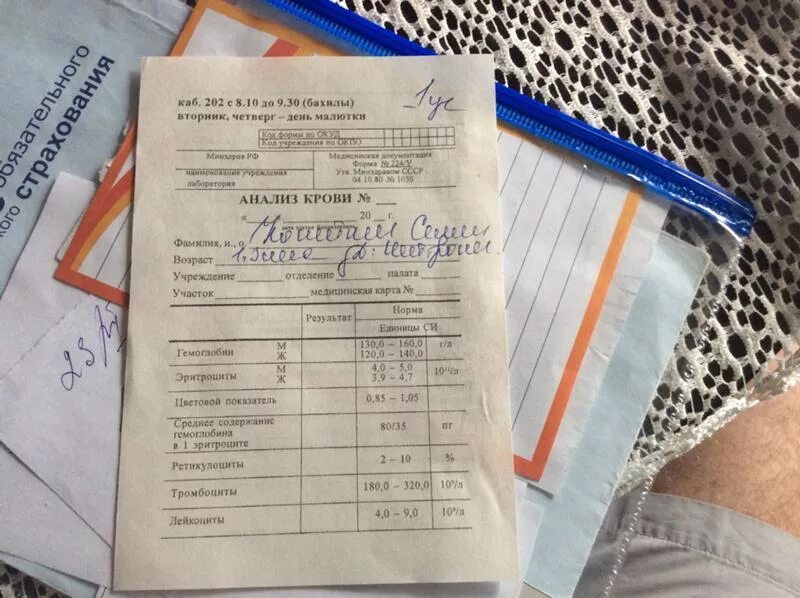 обязательного
страхования
каб. 202 с 8.10 до 9.30 (бахилы)
вторник, четверг – день малютки
Код формы по ОКУД
Код учреждения по ОКПО
Минздрав РФ
наименование учреждения
лаборатория
Медицинская документация
Форма № 224/У
Утв. Минздравом СССР
04.10.80 № 1030
АНАЛИЗ КРОВИ № ___
« ___ 20 __ г.
дата взятия биоматериала
Фамилия, и., о
Возраст
Учреждение ___ отделение ___ палата ___
Участок ___ медицинская карта № ___
Результат Норма
Единицы СИ
Гемоглобин М 130,0 – 160,0 г/л
Ж 120,0 – 140,0
Эритроциты М 4,0 – 5,0 10¹²/л
Ж 3,9 – 4,7
Цветовой показатель 0,85 – 1,05
Среднее содержание
гемоглобина 80/35 пг
в 1 эритроците
Ретикулоциты 2 – 10 %
Тромбоциты 180,0 – 320,0 10⁹/л
Лейкоциты 4,0 – 9,0 10⁹/л